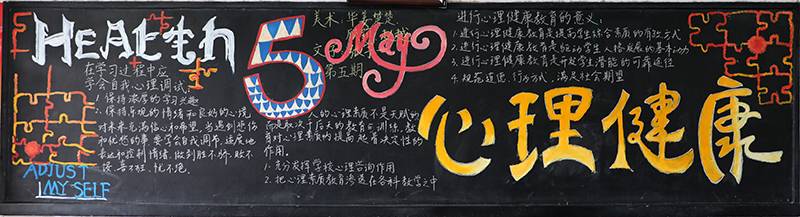 HEALTH
在学习过程中应
学会自我心理调试
1、保持浓厚的学习兴趣
2、保持乐观的情绪和良好的心境
对未来充满信心和希望,当遇到悲伤
和忧愁的事要学会自我调节,适度地
表达和控制情绪,做到胜不骄,败不
馁,喜不狂,忧不绝。
ADJUST
MYSELF
5 May
美术:
文
第五期
人的心理素质不是天赋的
而是取决于后天的教育与训练,教
育对心理素质的提高起着决定性的
作用。
1、充分发挥学校心理咨询作用
2、把心理素质教育渗透在各科教学之中
进行心理健康教育的意义:
1、进行心理健康教育是提高学生综合素质的有效方式
2、进行心理健康教育是驱动学生人格发展的基本动力
3、进行心理健康教育是开起学生潜能的可靠途径
4、规范道德、行为方式,满足社会期望
心理健康